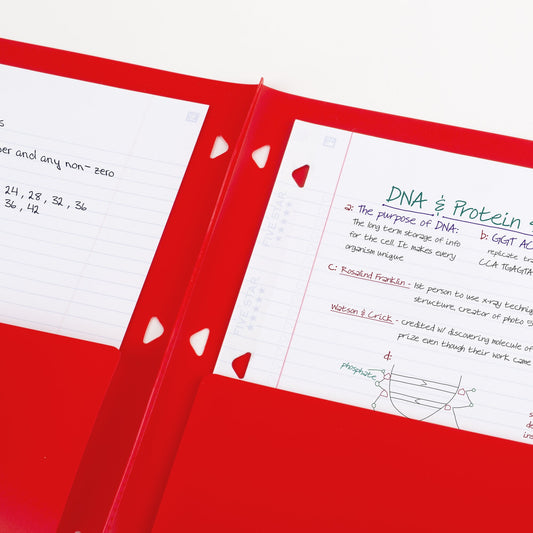 and any non-zero
24, 28, 32, 36
36, 42
FIVE STAR
FIVE STAR
DNA & Protein
a: The purpose of DNA:
The long term storage of info
for the cell. It makes every
organism unique
b: GGT AC
replicate
CCA TGAGTA
C: Rosalind Franklin - 1st person to use x-ray
structure, creator of photo 5
Watson & Crick - credited w/ discovering molecule of
prize even though their work came
d:
phosphate